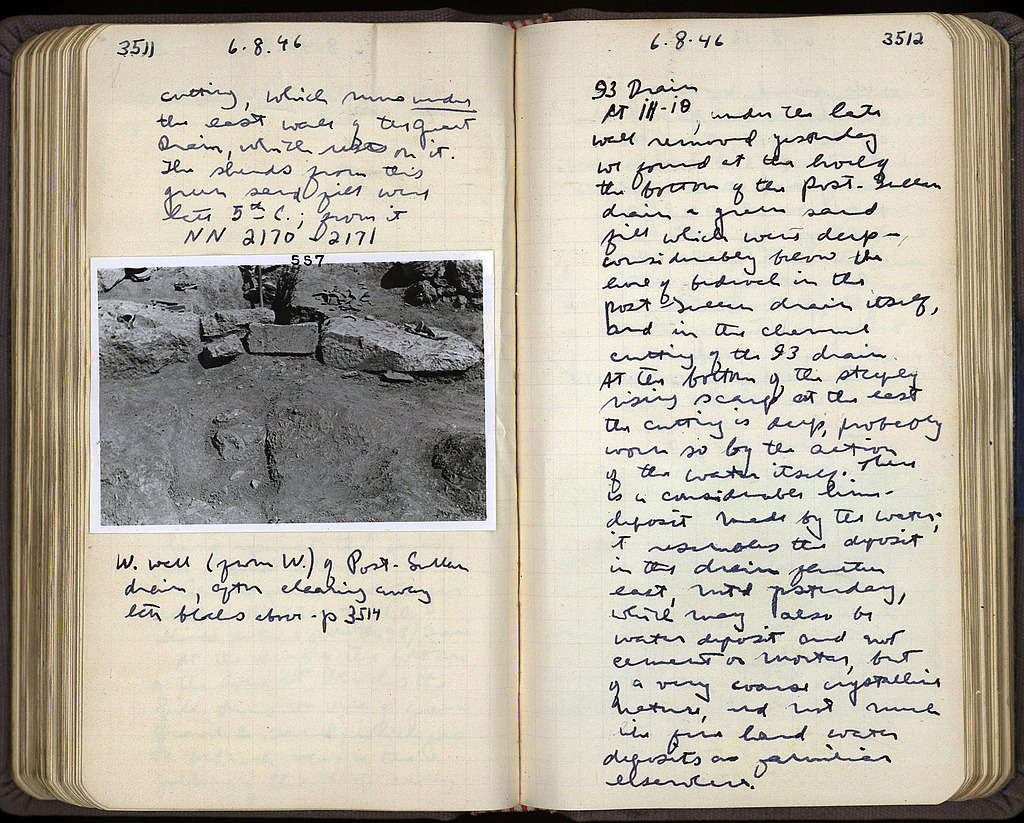 3511
6.8.46
cutting, which runs under
the east wall of the Great
Drain, which rests on it.
The sherds from this
green sand fill were
late 5th C.; from it
NN 2170 - 2171
557
W. wall (from W.) of Post-Sullan
drain, after clearing away
late blocks above - p 3514
6.8.46
3512
93 Drain
At 18, under the late
wall removed yesterday
we found at the level of
the bottom of the Post-Sullan
drain a green sand
fill which went deep -
considerably below the
line of bedrock in the
Post Sullan drain itself,
and in the channel
cutting of the 93 drain.
At the bottom of the steeply
rising scarp at the east
the cutting is deep, probably
worn so by the action
of the water itself. There
is a considerable lime-
deposit made by the water;
it resembles the deposit
in the drain further
east, noted yesterday,
which may also be
water deposit and not
cement or mortar, but
of a very coarse crystalline
nature, and not much
like fine hard water
deposits as familiar
elsewhere.